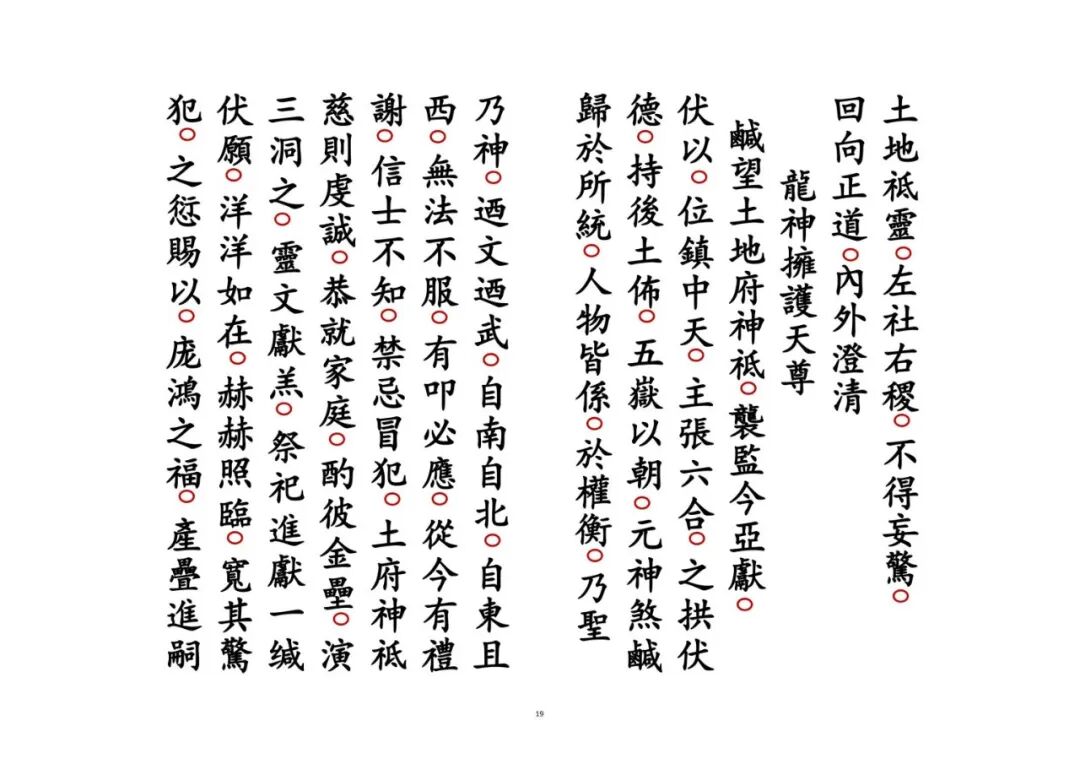 土地祇靈○左社右稷○不得妄驚○
回向正道○內外澄清
龍神擁護天尊
鹹望土地府神祇○襲監今亞獻○
伏以○位鎮中天○主張六合○之拱伏
德○持後土佈○五嶽以朝○元神煞鹹
歸於所統○人物皆係○於權衡○乃聖
乃神○迺文迺武○自南自北○自東且
西○無法不服○有叩必應○從今有禮
謝○信士不知○禁忌冒犯○土府神祇
慈則虔誠○恭就家庭○酌彼金壘○演
三洞之○靈文獻羔○祭祀進獻一缄
伏願○洋洋如在○赫赫照臨○寬其驚
犯○之愆賜以○庞鴻之福○產疊進嗣
19